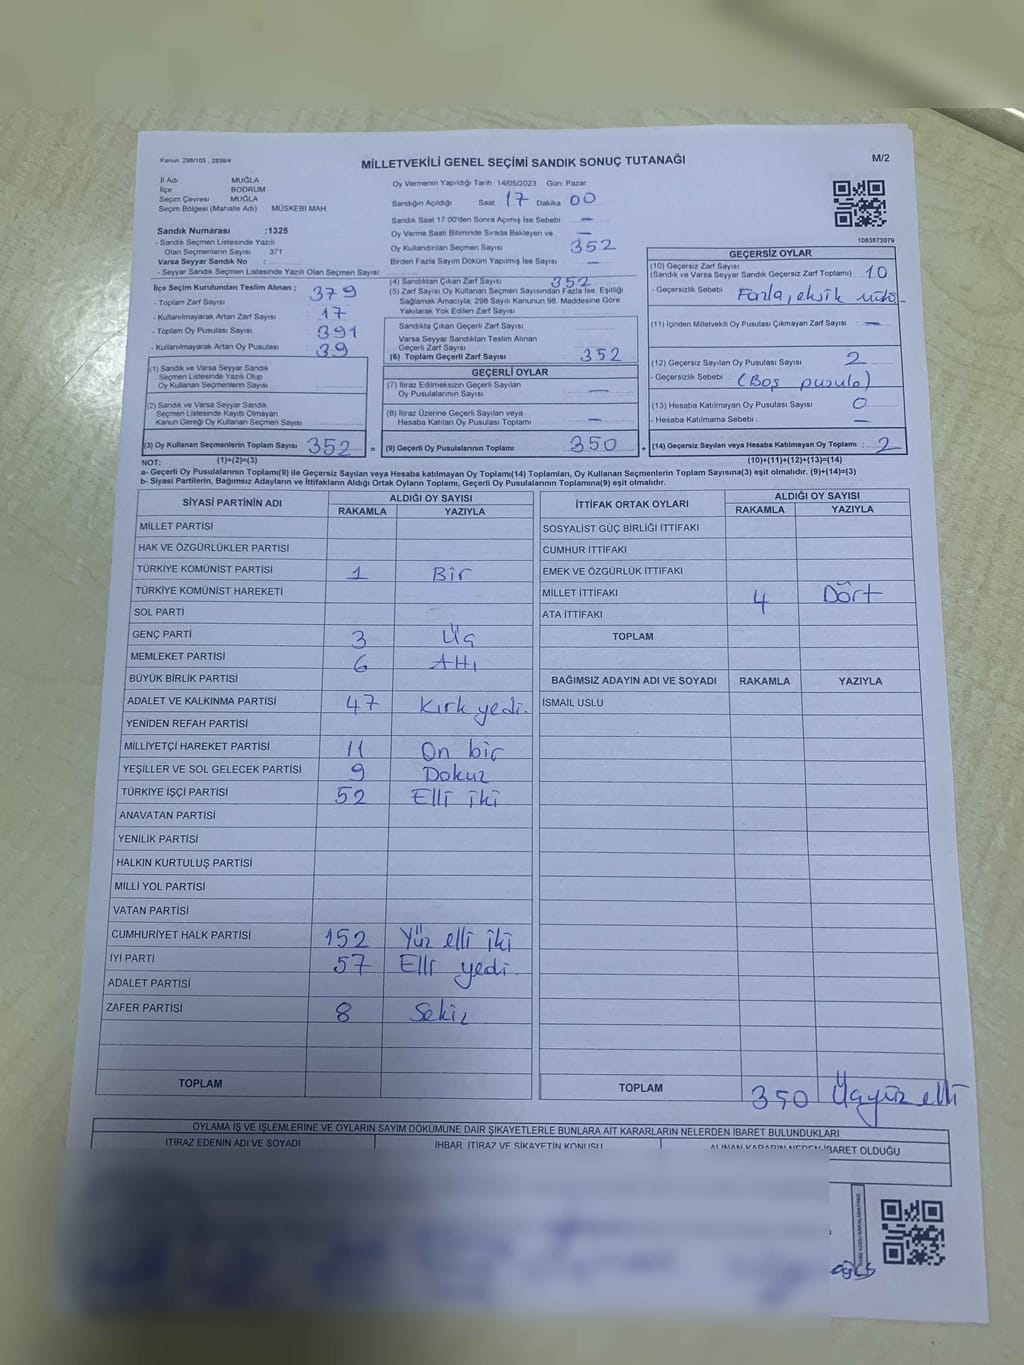 Kanun: 298/105 , 2839/4
MİLLETVEKİLİ GENEL SEÇİMİ SANDIK SONUÇ TUTANAĞI
M/2
İl Adı : MUĞLA
İlçe : BODRUM
Seçim Çevresi : MUĞLA
Seçim Bölgesi (Mahalle Adı) : MÜSKEBİ MAH.
Sandık Numarası :1325
- Sandık Seçmen Listesinde Yazılı
Olan Seçmenlerin Sayısı : 371
Varsa Seyyar Sandık No :
- Seyyar Sandık Seçmen Listesinde Yazılı Olan Seçmen Sayısı:
İlçe Seçim Kurulundan Teslim Alınan ;
- Toplam Zarf Sayısı : 379
- Kullanılmayarak Artan Zarf Sayısı : 17
- Toplam Oy Pusulası Sayısı : 391
- Kullanılmayarak Artan Oy Pusulası : 39
(1) Sandık ve Varsa Seyyar Sandık
Seçmen Listesinde Yazılı Olup
Oy Kullanan Seçmenlerin Sayısı :
(2) Sandık ve Varsa Seyyar Sandık
Seçmen Listesinde Kayıtlı Olmayan
Kanun Gereği Oy Kullanan Seçmen Sayısı :
(3) Oy Kullanan Seçmenlerin Toplam Sayısı : 352 =
(1)+(2)=(3)
Oy Vermenin Yapıldığı Tarih :14/05/2023 Gün: Pazar
Sandığın Açıldığı Saat : 17 Dakika : 00
Sandık Saat 17.00'den Sonra Açımış İse Sebebi : —
Oy Verme Saati Bitiminde Sırada Bekleyen ve : —
Oy Kullandırılan Seçmen Sayısı : 352
Birden Fazla Sayım Döküm Yapılmış İse Sayısı : —
(4) Sandıktan Çıkan Zarf Sayısı : 352
(5) Zarf Sayısı Oy Kullanan Seçmen Sayısından Fazla İse, Eşitliği
Sağlamak Amacıyla; 298 Sayılı Kanunun 98. Maddesine Göre
Yakılarak Yok Edilen Zarf Sayısı :
Sandıkta Çıkan Geçerli Zarf Sayısı :
Varsa Seyyar Sandıktan Teslim Alınan
Geçerli Zarf Sayısı :
(6) Toplam Geçerli Zarf Sayısı : 352
GEÇERLİ OYLAR
(7) İtiraz Edilmeksizin Geçerli Sayılan
Oy Pusulalarının Sayısı : —
(8) İtiraz Üzerine Geçerli Sayılan veya
Hesaba Katılan Oy Pusulası Toplamı : —
(9) Geçerli Oy Pusulalarının Toplamı : 350 +
1083873079
GEÇERSİZ OYLAR
(10) Geçersiz Zarf Sayısı
(Sandık ve Varsa Seyyar Sandık Geçersiz Zarf Toplamı) : 10
- Geçersizlik Sebebi : Fazla, eksik
(11) İçinden Milletvekili Oy Pusulası Çıkmayan Zarf Sayısı : —
(12) Geçersiz Sayılan Oy Pusulası Sayısı : 2
- Geçersizlik Sebebi : (Boş pusula)
(13) Hesaba Katılmayan Oy Pusulası Sayısı : 0
- Hesaba Katılmama Sebebi : —
(14) Geçersiz Sayılan veya Hesaba Katılmayan Oy Toplamı : 2
(10)+(11)+(12)+(13)=(14)
NOT:
a- Geçerli Oy Pusulalarının Toplamı(9) ile Geçersiz Sayılan veya Hesaba katılmayan Oy Toplamı(14) Toplamları, Oy Kullanan Seçmenlerin Toplam Sayısına(3) eşit olmalıdır. (9)+(14)=(3)
b- Siyasi Partilerin, Bağımsız Adayların ve İttifakların Aldığı Ortak Oyların Toplamı, Geçerli Oy Pusulalarının Toplamına(9) eşit olmalıdır.
SİYASİ PARTİNİN ADI
ALDIĞI OY SAYISI
RAKAMLA YAZIYLA
MİLLET PARTİSİ
HAK VE ÖZGÜRLÜKLER PARTİSİ
TÜRKİYE KOMÜNİST PARTİSİ 1 Bir
TÜRKİYE KOMÜNİST HAREKETİ
SOL PARTİ
GENÇ PARTİ 3 Üç
MEMLEKET PARTİSİ 6 Altı
BÜYÜK BİRLİK PARTİSİ
ADALET VE KALKINMA PARTİSİ 47 Kırk yedi.
YENİDEN REFAH PARTİSİ
MİLLİYETÇİ HAREKET PARTİSİ 11 On bir
YEŞİLLER VE SOL GELECEK PARTİSİ 9 Dokuz
TÜRKİYE İŞÇİ PARTİSİ 52 Elli iki
ANAVATAN PARTİSİ
YENİLİK PARTİSİ
HALKIN KURTULUŞ PARTİSİ
MİLLİ YOL PARTİSİ
VATAN PARTİSİ
CUMHURİYET HALK PARTİSİ 152 Yüz elli iki
İYİ PARTİ 57 Elli yedi.
ADALET PARTİSİ
ZAFER PARTİSİ 8 Sekiz
TOPLAM
İTTİFAK ORTAK OYLARI
ALDIĞI OY SAYISI
RAKAMLA YAZIYLA
SOSYALİST GÜÇ BİRLİĞİ İTTİFAKI
CUMHUR İTTİFAKI
EMEK VE ÖZGÜRLÜK İTTİFAKI
MİLLET İTTİFAKI 4 Dört
ATA İTTİFAKI
TOPLAM
BAĞIMSIZ ADAYIN ADI VE SOYADI RAKAMLA YAZIYLA
İSMAİL USLU
TOPLAM 350 Üçyüz elli
OYLAMA İŞ VE İŞLEMLERİNE VE OYLARIN SAYIM DÖKÜMÜNE DAİR ŞİKAYETLERLE BUNLARA AİT KARARLARIN NELERDEN İBARET BULUNDUKLARI
İTİRAZ EDENİN ADI VE SOYADI
İHBAR, İTİRAZ VE ŞİKAYETİN KONUSU
ALINAN KARARIN NEDEN İBARET OLDUĞU